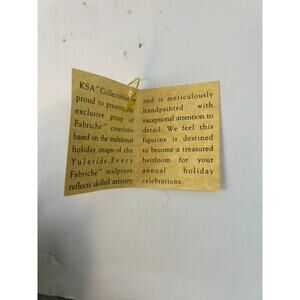 KSA™ Collectibles
proud to present
exclusive group of
Fabriché™ creations
based on the traditional
holiday images of the
Yuletide. Every
Fabriché™ sculpture
reflects skilled artistry
and is meticulously
handpainted with
exceptional attention to
detail. We feel this
figurine is destined
to become a treasured
heirloom for your
annual holiday
celebrations.